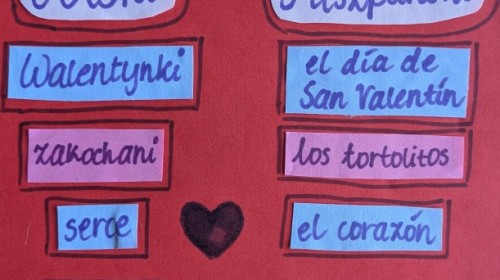 Walentynki
el día de
San Valentín
zakochani
los tortolitos
serce
el corazón